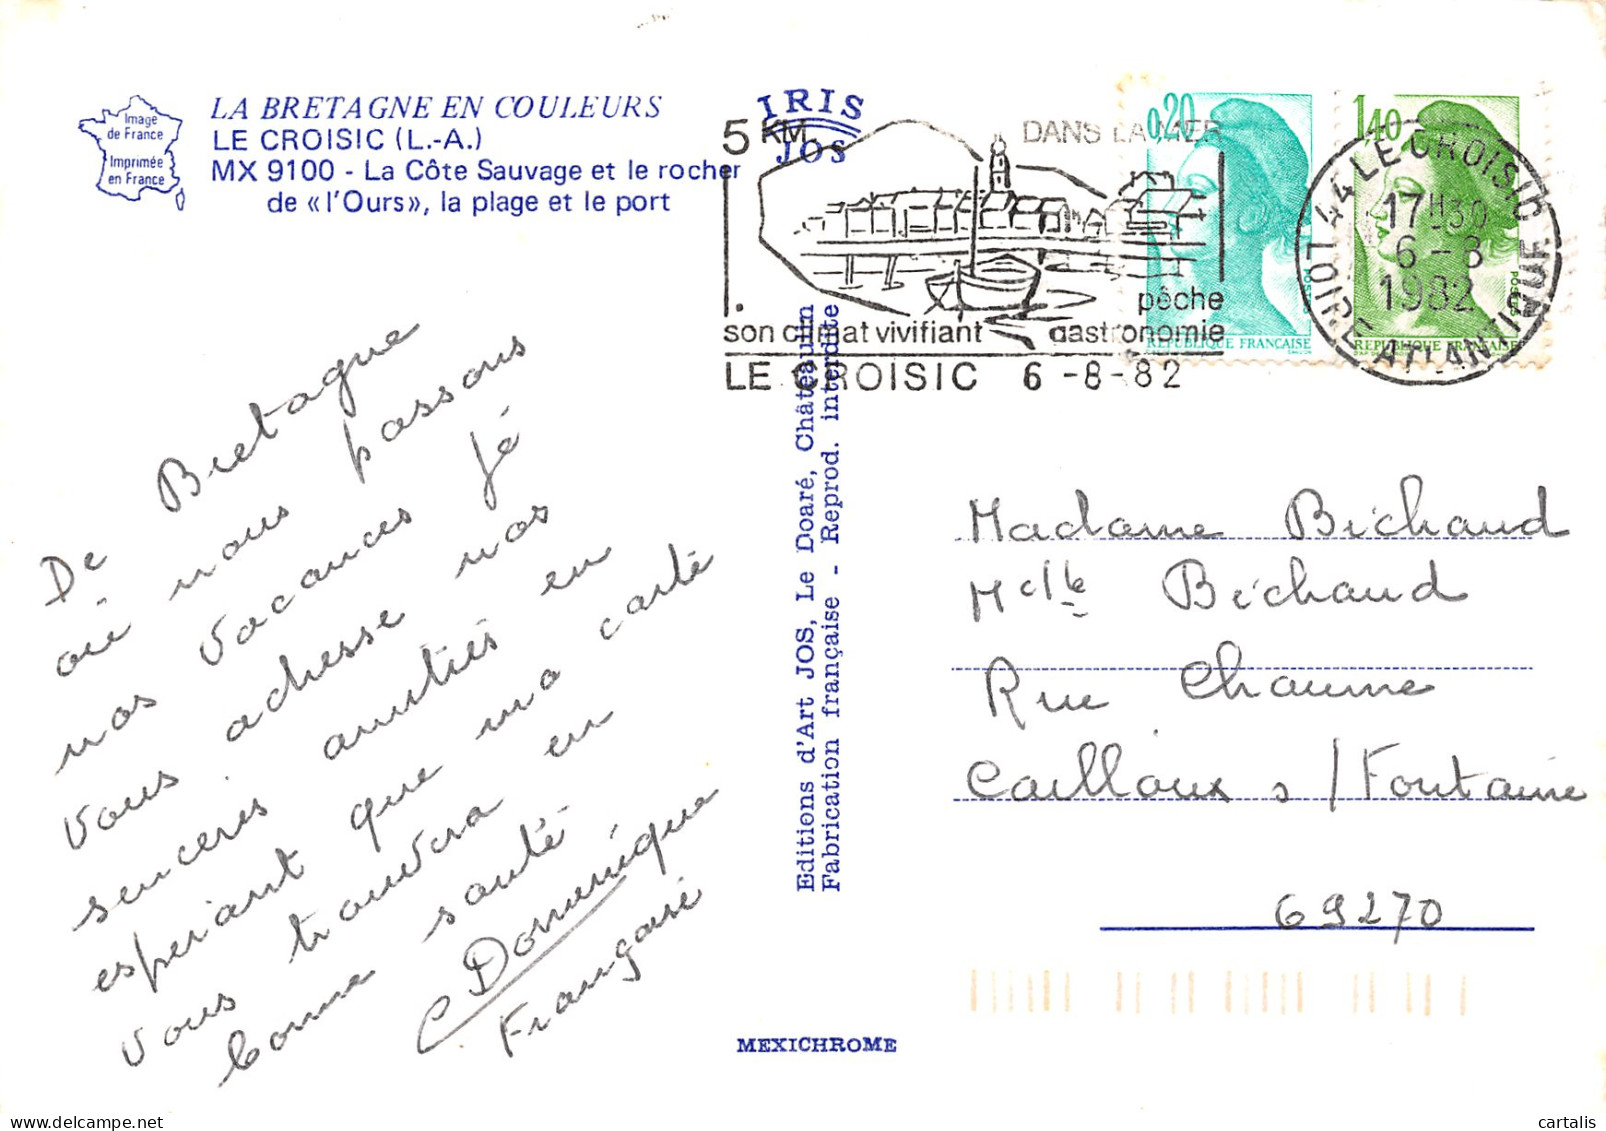 Image
de France
Imprimée
en France
LA BRETAGNE EN COULEURS
LE CROISIC (L.-A.)
MX 9100 - La Côte Sauvage et le rocher
de « l'Ours », la plage et le port
IRIS
JOS
5 KM DANS LA MER
son climat vivifiant
pêche
gastronomie
LE CROISIC 6-8-82
0,20
POSTES
REPUBLIQUE FRANÇAISE
1,40
POSTES
REPUBLIQUE FRANÇAISE
44 LE CROISIC
17H30
6-8
1982
LOIRE ATLANTIQUE
De Bretagne
où nous passons
nos vacances je
vous adresse nos
sinceres amitiés en
esperant que ma carte
vous trouvera en
bonne santé
Dominique
Françoise
Editions d'Art JOS, Le Doaré, Châteaulin
Fabrication française - Reprod. interdite
Madame Bichaud
Melle Bichaud
Rue Chaume
Cailloux s/Fontaine
69270
MEXICHROME
cartalis